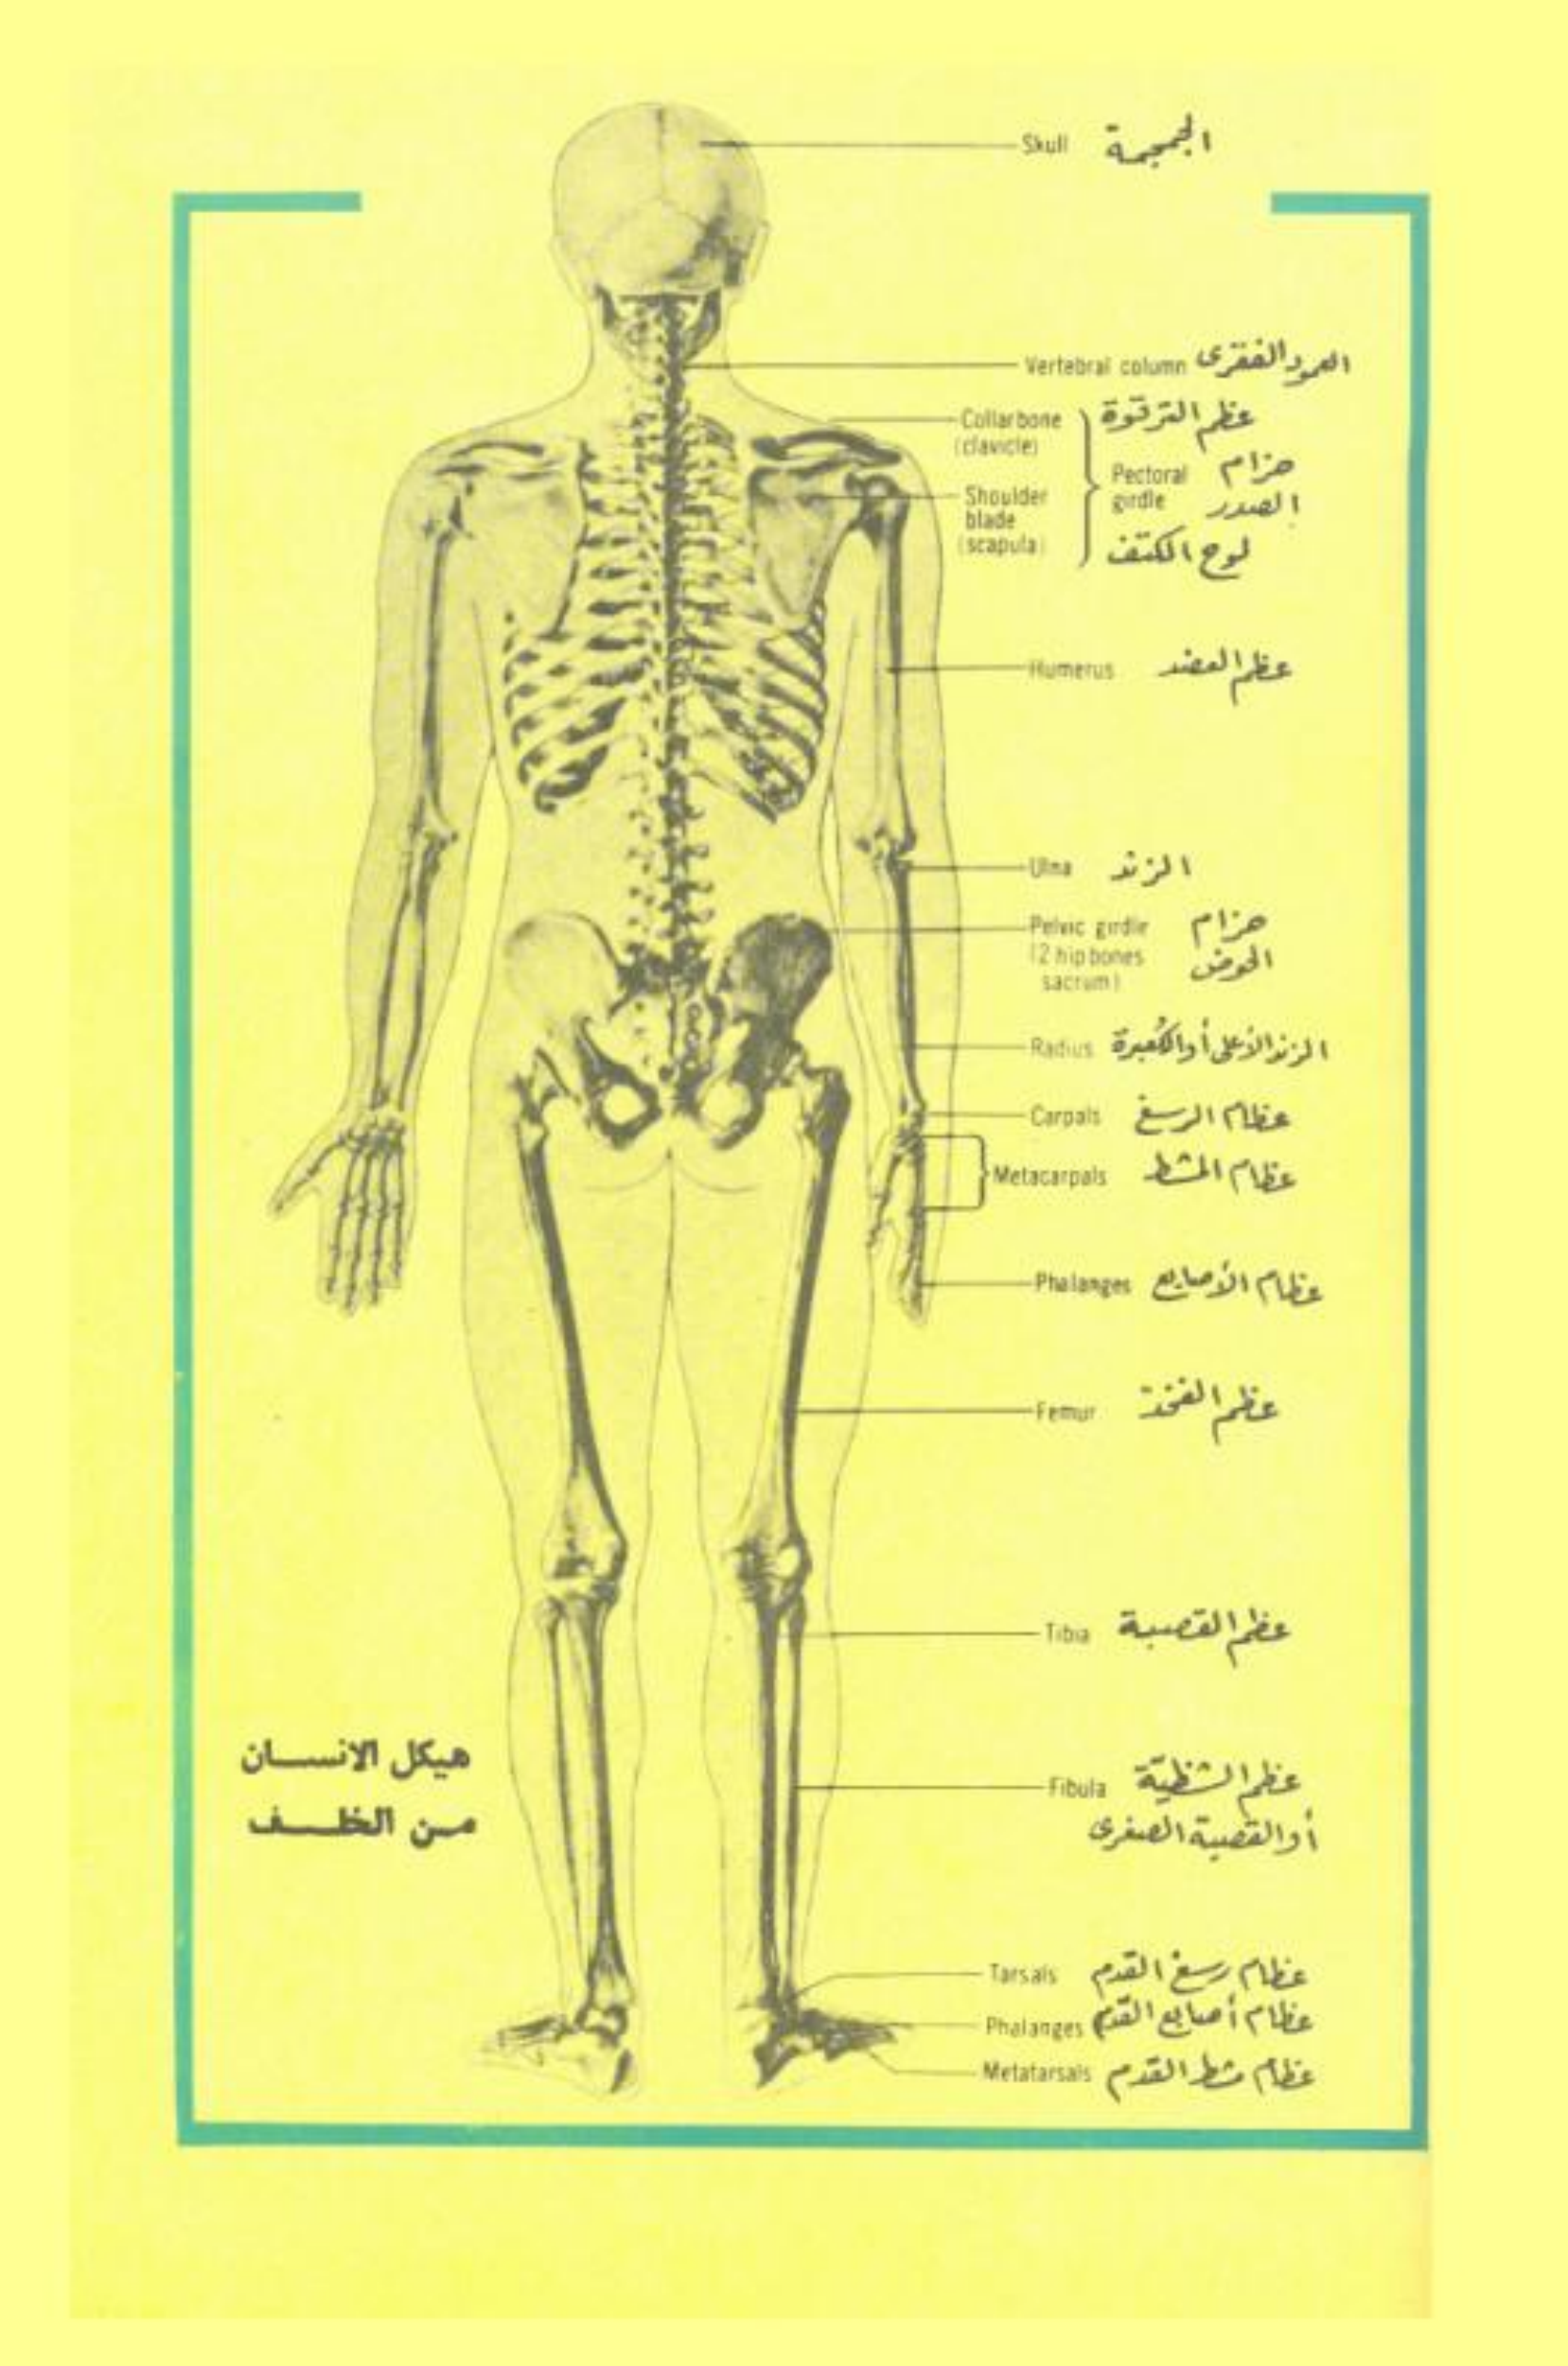 Skull الجمجمة
Vertebral column العمود الفقرى
Collarbone عظم الترقوة
(clavicle)
Pectoral حزام
girdle الصدر
Shoulder
blade
(scapula) لوح الكتف
Humerus عظم العضد
Ulna الزند
Pelvic girdle حزام
(2 hip bones الحوض
sacrum)
Radius الزند الأعلى أو الكُعبرة
Carpals عظام الرسغ
Metacarpals عظام المشط
Phalanges عظام الأصابع
Femur عظم الفخذ
Tibia عظم القصبة
هيكل الانسان
من الخلف
Fibula عظم الشظيّة
أو القصبة الصغرى
Tarsals عظام رسغ القدم
Phalanges عظام أصابع القدم
Metatarsals عظام مشط القدم